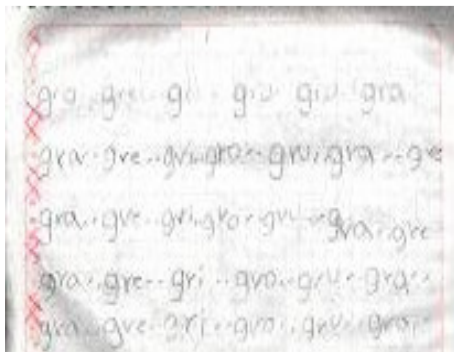 gra gre gri gro gru gra
gra gre gri gro gru gra gre
gra gre gri gro gru gra gre
gra gre gri gro gru gra
gra gre gri gro gru gra